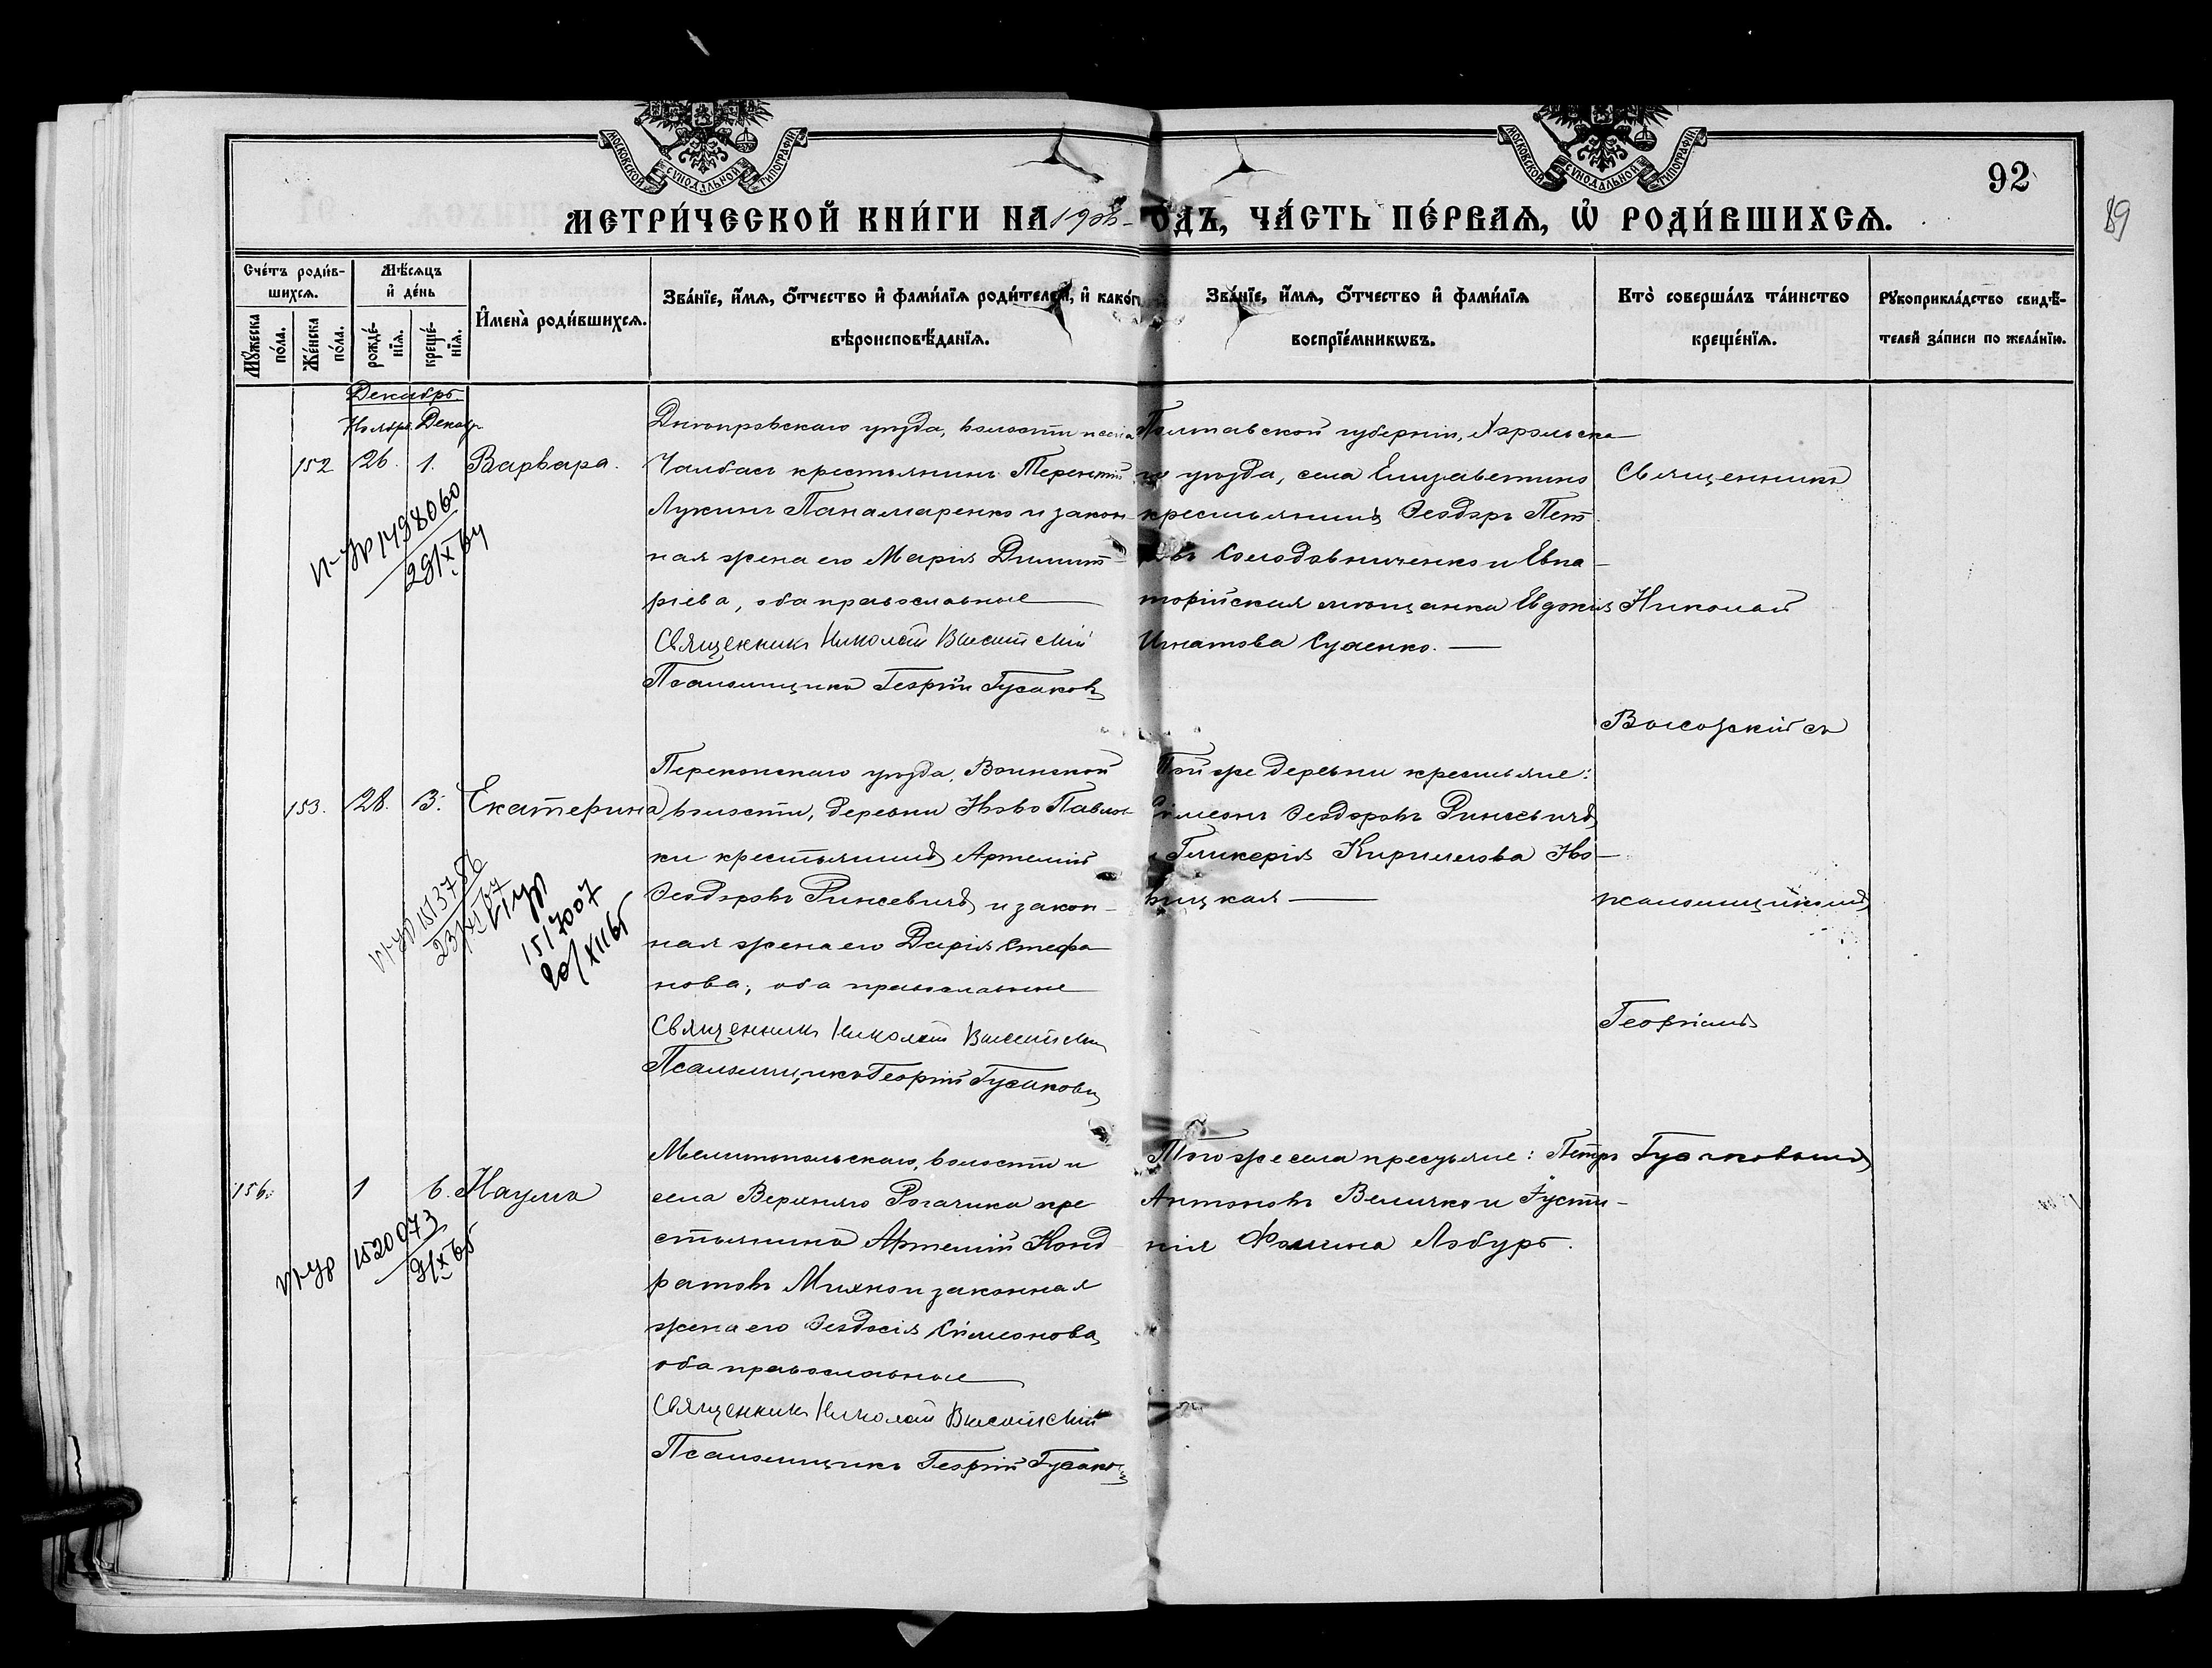 МОСКОВСКОЙ СУНОДАЛЬНОЙ ТИПОГРАФІИ
МОСКОВСКОЙ СУНОДАЛЬНОЙ ТИПОГРАФІИ
92
89
МЕТРИ́ЧЕСКОЙ КНИ́ГИ НА 190
ОДЪ, ЧА́СТЬ ПЕ́РВАЯ, Ѡ РОДИ́ВШИХСЯ.
Сче́тъ роди́в-
шихся.
Мѣ́сяцъ
и де́нь
Мꙋ́жеска
по́ла.
Же́нска
по́ла.
рожде́-
нїя.
креще́-
нїя.
И҆мена̀ роди́вшихся.
Зва́нїе, и҆́мя, ѻ҆́тчество и҆ фами́лїя роди́телей, и҆ како́г
вѣроисповѣ́данїя.
Зва́нїе, и҆́мя, ѻ҆́тчество и҆ фами́лїя
воспрїе́мникѡвъ.
Кто̀ соверша́лъ та́инство
креще́нїя.
Рꙋкоприкла́дство свидѣ́-
телей за́писи по жела́нїю.
Декабрь
Ноябрь Декабр
152 26. 1. Варвара.
Днѣпровскаго уѣзда, волости и села
Чалбасъ крестьянинъ Терентій
Лукинъ Панамаренко и закон-
ная жена его Марія Димит-
ріева, оба православные
Священникъ Николай
Псаломщикъ Георгій Гусаковъ
Полтавской губерніи, Хорольска-
го уѣзда, села Елизаветино
крестьянинъ Ѳеодоръ Пет
ровъ Солодовниченко и Евпа-
торійская мѣщанка Евдокія
Игнатова Сухенко.
Священникъ
Николай
И-ур 1498060
29/X 64
153. 28. 3. Екатерина
Перекопскаго уѣзда, Воинской
волости, деревни Ново Павлов-
ки крестьянинъ Артемій
Ѳеодоровъ Ринкевичъ и закон-
ная жена его Дарія Стефа
нова, оба православные
Священникъ Николай
Псаломщикъ Георгій Гусаковъ
Той же деревни крестьяне:
Симеонъ Ѳеодоровъ Ринкевичъ
и Гликерія Кириллова Но-
вицкая
псаломщикомъ
Георгіемъ
1513786
1517007
20/XII 65
156. 1 6. Наумъ
Мелитопольскаго, волости и
села Верхняго Рогачика кре
стьянинъ Артемій Конд
ратовъ Михно и законная
жена его Ѳеодосія Симеонова,
оба православные
Священникъ Николай
Псаломщикъ Георгій Гусаковъ
Того же села крестьяне: Петръ
Антоновъ Величко и Іусти-
нія Фомина Лобурь.
Гусаковымъ
И-ур 1520073